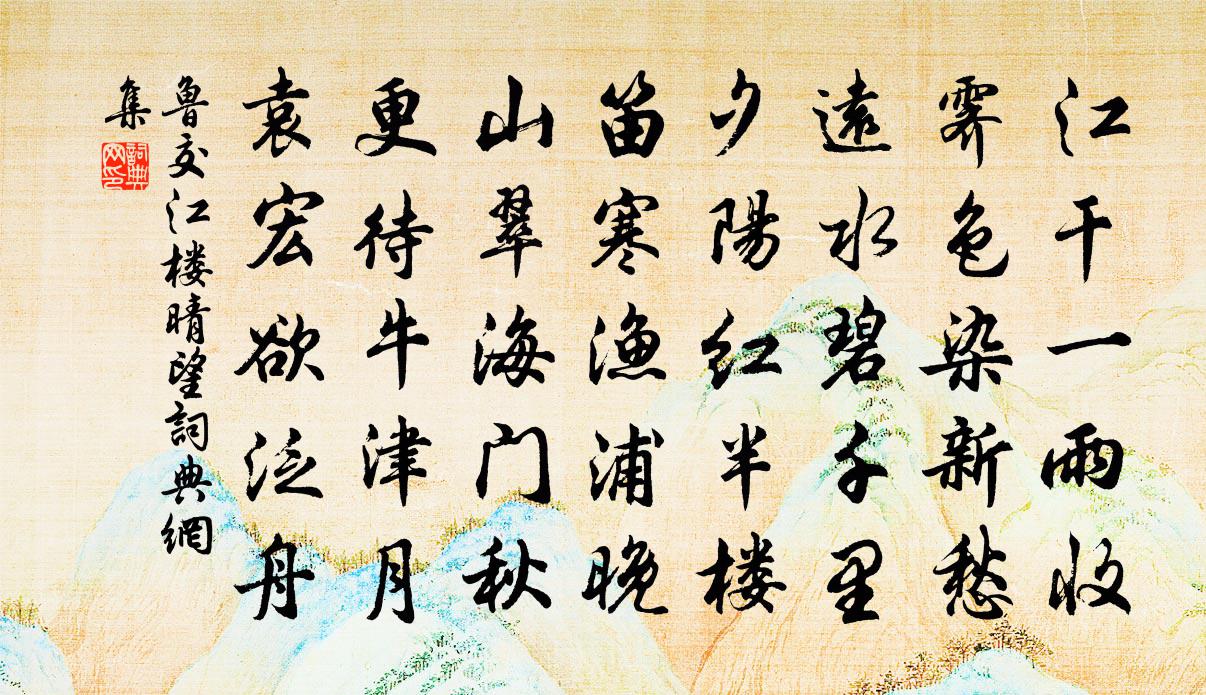 江干一雨收
霽色染新愁
遠水碧千里
夕陽红半楼
笛寒漁浦晚
山翠海门秋
更待牛津月
袁宏欲泛舟
魯交江楼晴望詞典網
集
詞典网印